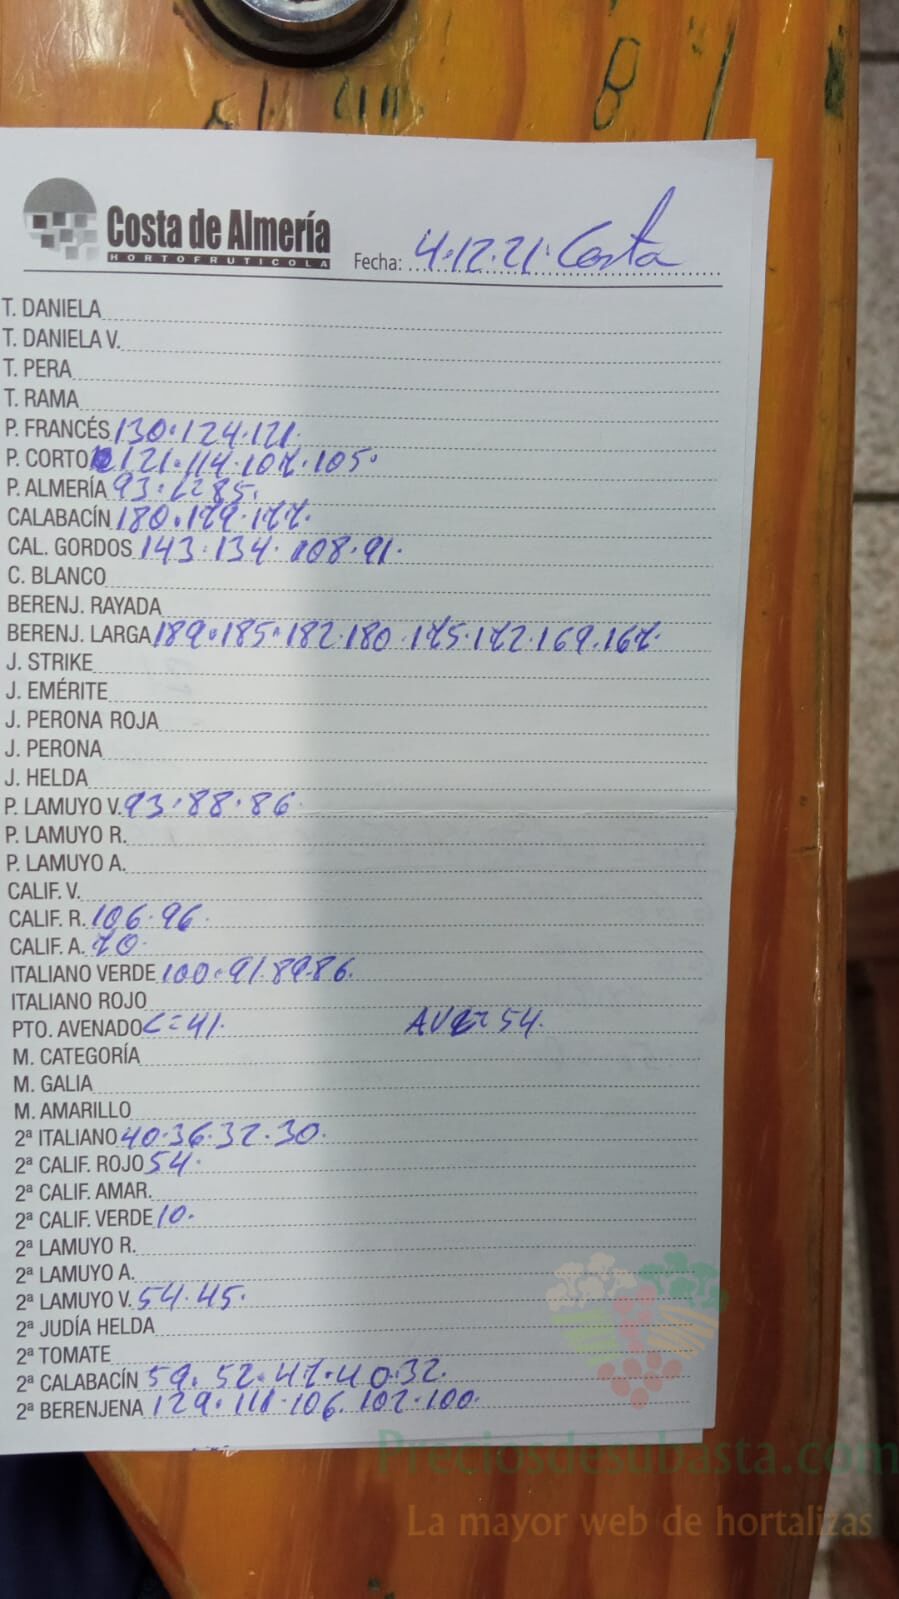 Costa de Almería
HORTOFRUTICOLA
Fecha: 4.12.21. Costa
T. DANIELA
T. DANIELA V.
T. PERA
T. RAMA
P. FRANCÉS 130.124.121.
P. CORTO 121.114.107.105.
P. ALMERÍA 93. C=85.
CALABACÍN 180.179.177.
CAL. GORDOS 143.134.108.91.
C. BLANCO
BERENJ. RAYADA
BERENJ. LARGA 189.185.182.180.175.172.169.167.
J. STRIKE
J. EMÉRITE
J. PERONA ROJA
J. PERONA
J. HELDA
P. LAMUYO V. 93.88.86
P. LAMUYO R.
P. LAMUYO A.
CALIF. V.
CALIF. R. 106.96.
CALIF. A. 70.
ITALIANO VERDE 100.91.89.86.
ITALIANO ROJO
PTO. AVENADO C=41. 54.
M. CATEGORÍA
M. GALIA
M. AMARILLO
2ª ITALIANO 40.36.32.30.
2ª CALIF. ROJO 54.
2ª CALIF. AMAR.
2ª CALIF. VERDE 10.
2ª LAMUYO R.
2ª LAMUYO A.
2ª LAMUYO V. 54.45.
2ª JUDÍA HELDA
2ª TOMATE
2ª CALABACÍN 59.52.47.40.32.
2ª BERENJENA 129.111.106.102.100.
Preciosdesubasta.com
La mayor web de hortalizas